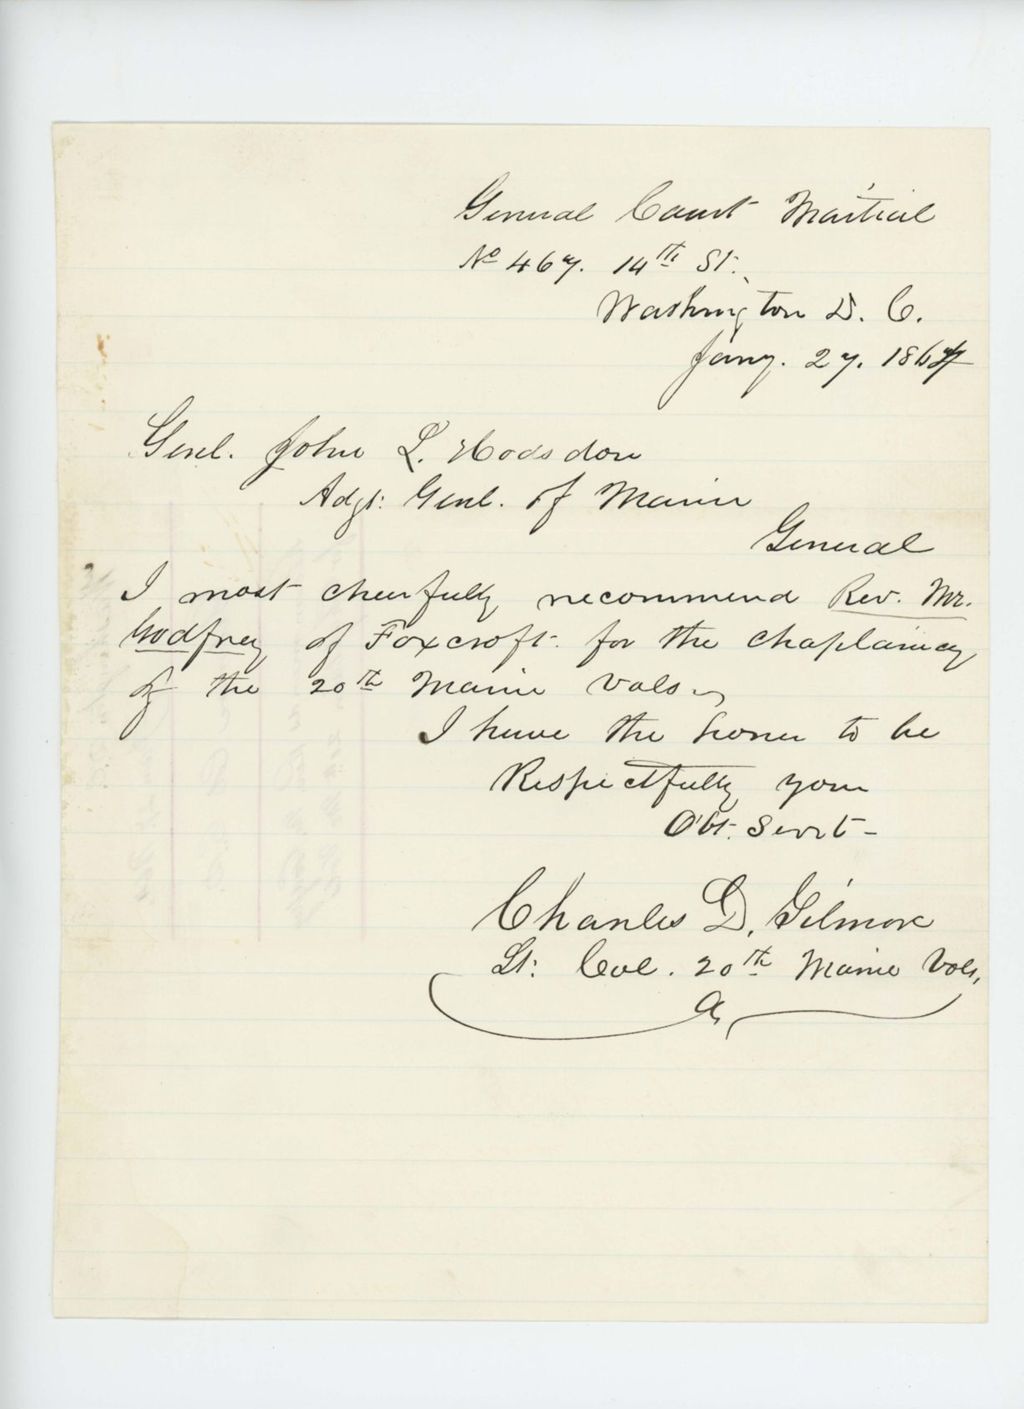 General Court Martial
No 467. 14th St.
Washington D. C.
Jany. 27. 1864
Genl. John L. Hodsdon
Adjt: Genl. of Maine
General
I most cheerfully recommend Rev. Mr.
Godfrey of Foxcroft. for the chaplaincy
of the 20th Maine Vols.
I have the honor to be
Respectfully your
Obt. Servt-
Charles D. Gilmore
Lt: Col. 20th Maine Vols,